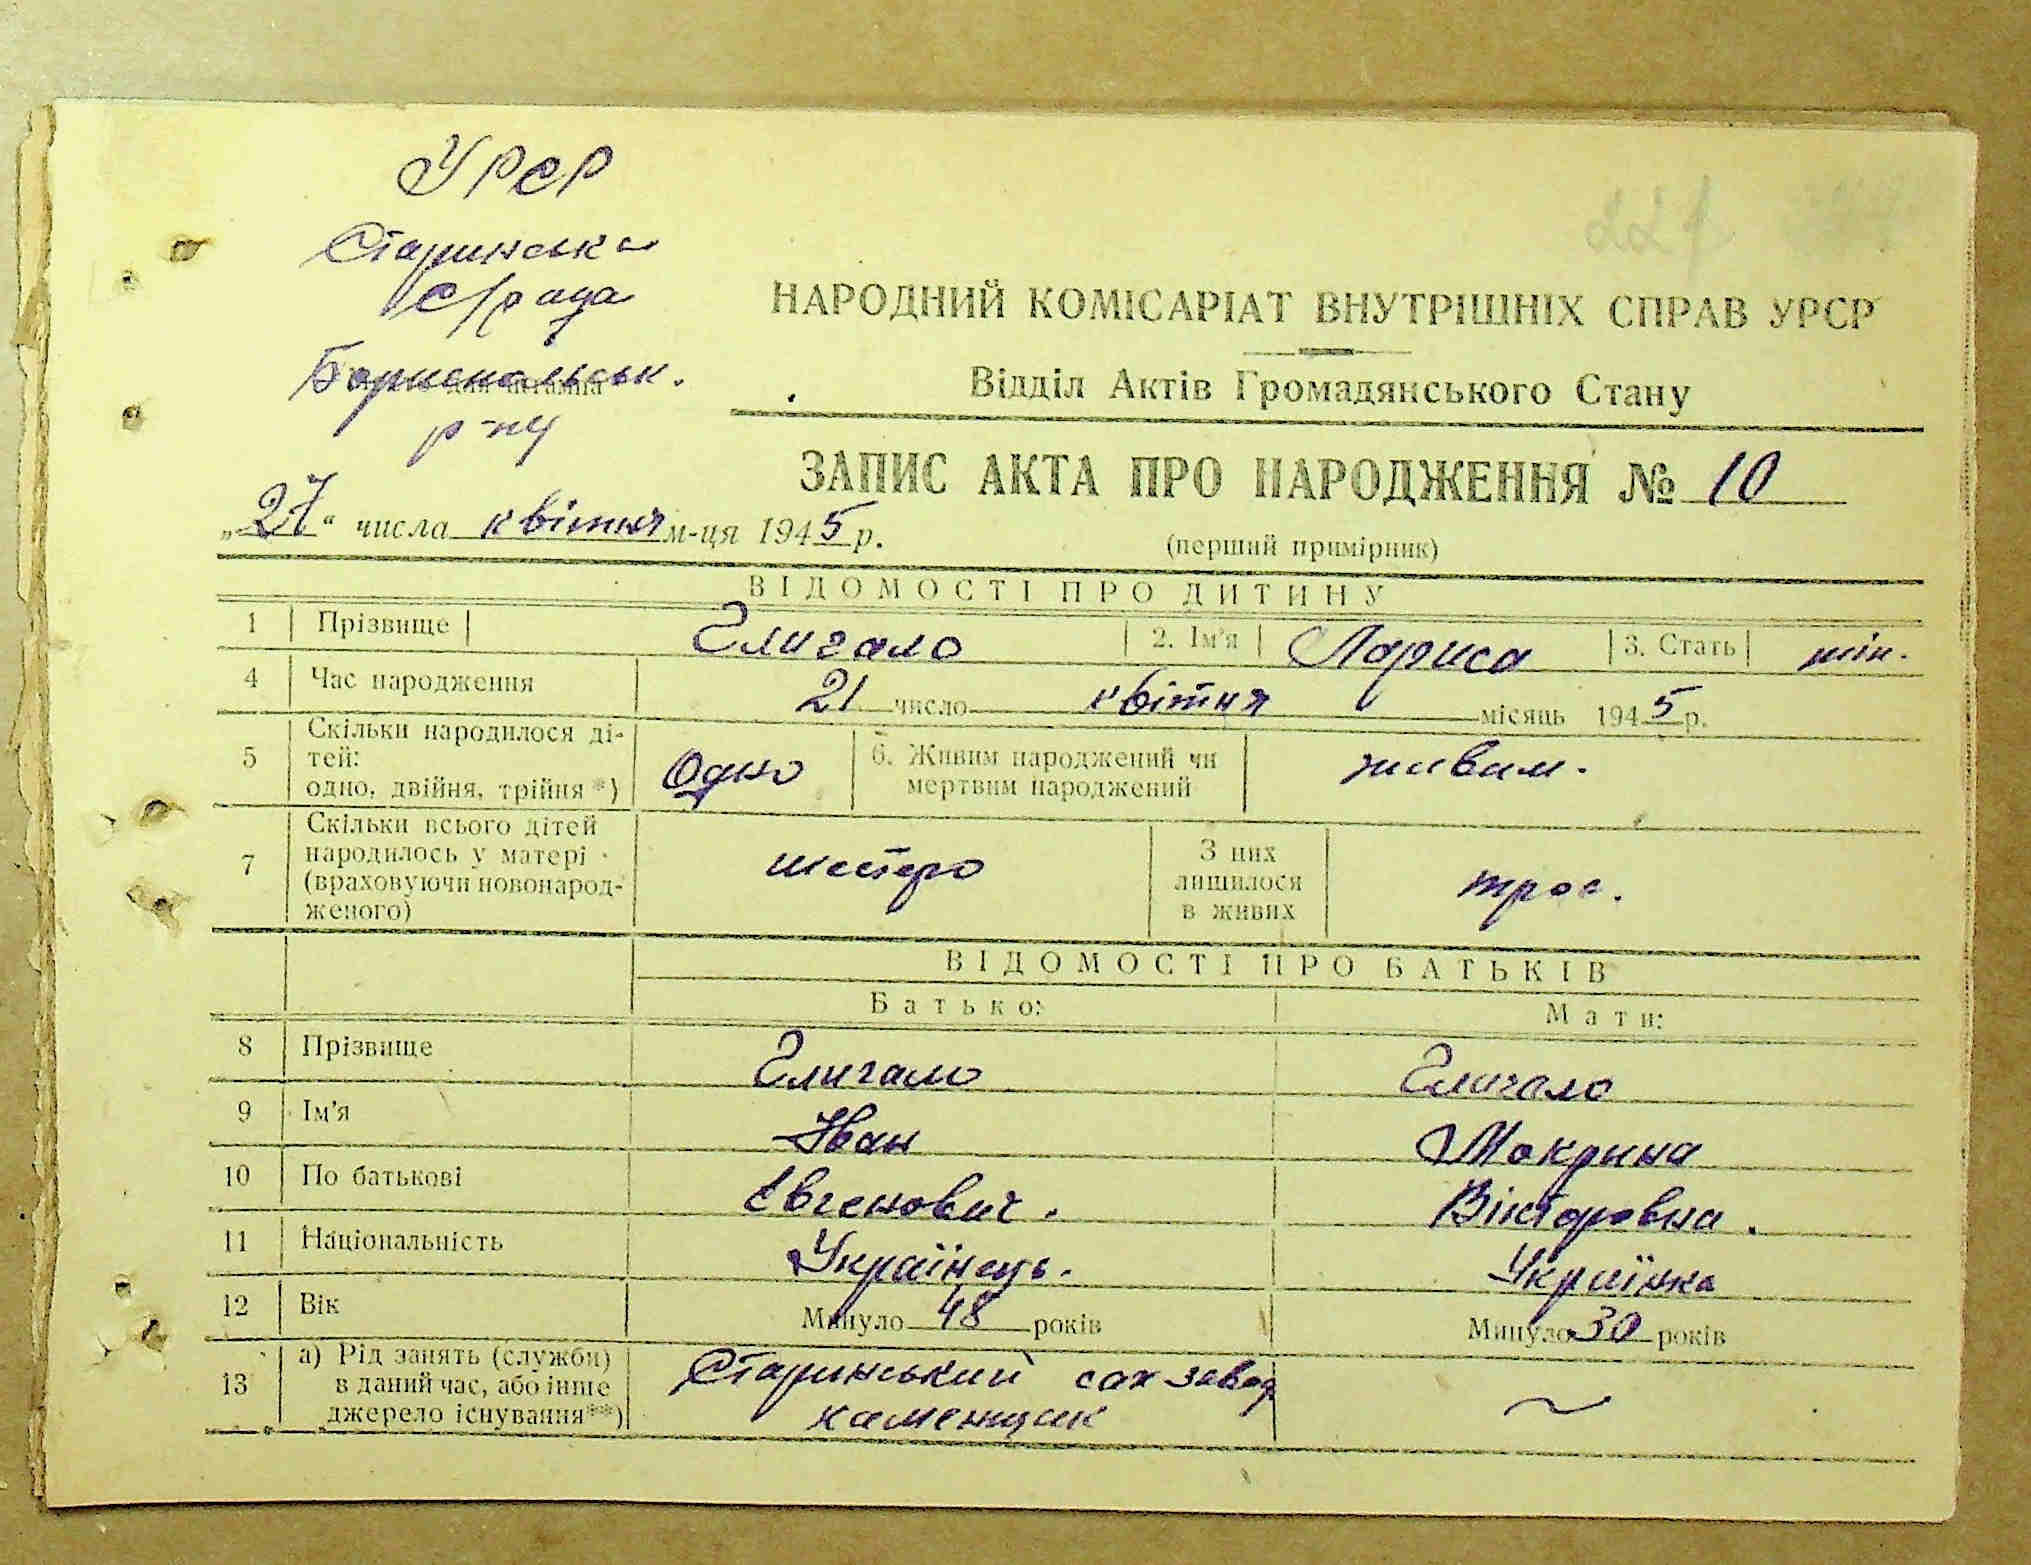 УРСР
Старинська
с/рада
Бориспольськ.
р-ну
221
НАРОДНИЙ КОМІСАРІАТ ВНУТРІШНІХ СПРАВ УРСР
Відділ Актів Громадянського Стану
ЗАПИС АКТА ПРО НАРОДЖЕННЯ № 10
„27“ числа квітня м-ця 1945 р.
(перший примірник)
ВІДОМОСТІ ПРО ДИТИНУ
1 Прізвище Глигало 2. Ім'я Лариса 3. Стать жін.
4 Час народження 21 число квітня місяць 1945 р.
5 Скільки народилося ді-
тей:
одно, двійня, трійня *) Одно 6. Живим народжений чи
мертвим народжений живим.
7 Скільки всього дітей
народилось у матері
(враховуючи новонарод-
женого) шестеро З них
лишилося
в живих троє.
ВІДОМОСТІ ПРО БАТЬКІВ
Батько: Мати:
8 Прізвище Глигало Глигало
9 Ім'я Іван Мокрина
10 По батькові Євгенович. Вікторовна.
11 Національність Українець. Українка
12 Вік Минуло 48 років Минуло 30 років
13 а) Рід занять (служби)
в даний час, або інше
джерело існування**) Старинський сахзавод
каменщик ~